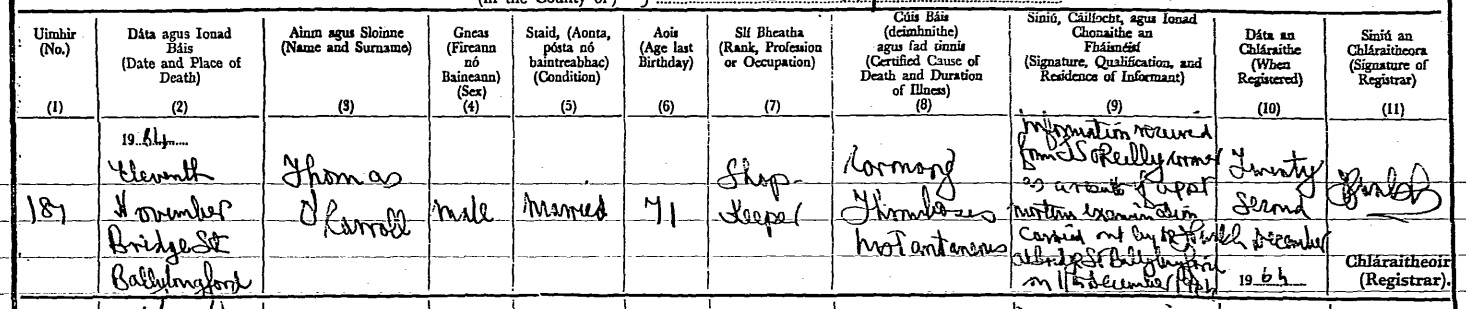 (in the County of)
Uimhir
(No.)
(1)
Dáta agus Ionad
Báis
(Date and Place of
Death)
(2)
Ainm agus Sloinne
(Name and Surname)
(3)
Gneas
(Fireann
nó
Baineann)
(Sex)
(4)
Staid, (Aonta,
pósta nó
baintreabhac)
(Condition)
(5)
Aois
(Age last
Birthday)
(6)
Slí Bheatha
(Rank, Profession
or Occupation)
(7)
Cúis Báis
(deimhnithe)
agus fad tinnis
(Certified Cause of
Death and Duration
of Illness)
(8)
Siniú, Cáilíocht, agus Ionad
Chonaithe an
Fháisnéisí
(Signature, Qualification, and
Residence of Informant)
(9)
Dáta an
Chláraithe
(When
Registered)
(10)
Siniú an
Chláraitheora
(Signature of
Registrar)
(11)
187
1964
Eleventh
November
Bridge St
Ballylongford
Thomas
O'Carroll
Male
Married
71
Shop
Keeper
Coronary
Thrombosis
Instantaneous
Information received
from O'Reilly Coroner
as a result of a post
mortem examination
carried out by
at Bridge St Ballylongford
on 11th December 1964
Twenty
Second
December
1964
Chláraitheoir
(Registrar).